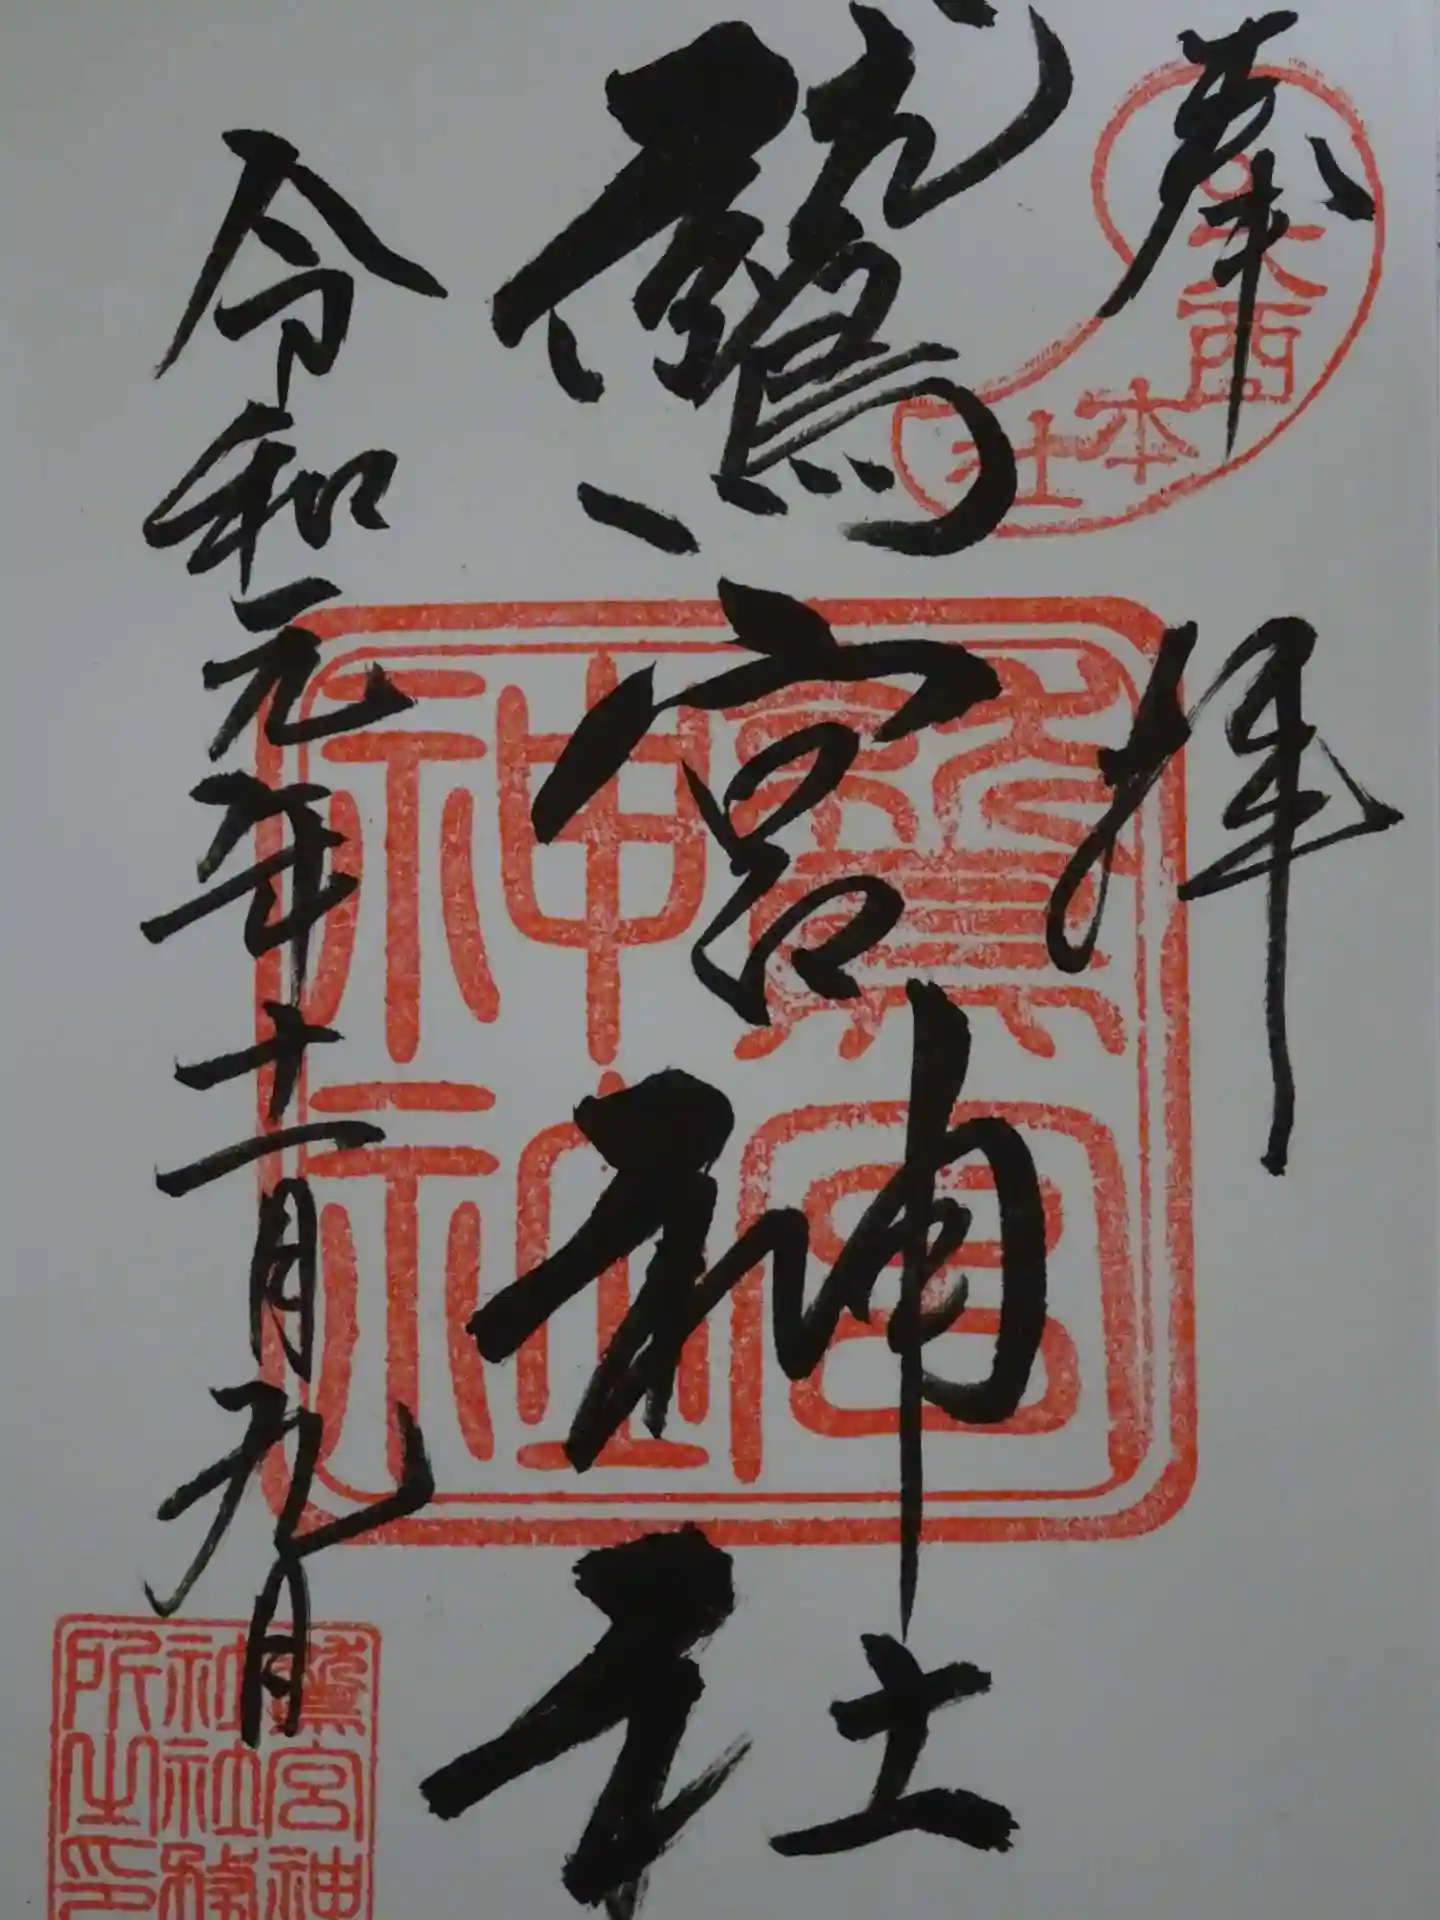 奉拝
大酉
本社
鷲宮神社
鷲宮
神社
令和元年十一月九日
鷲宮神
社社務
所之印